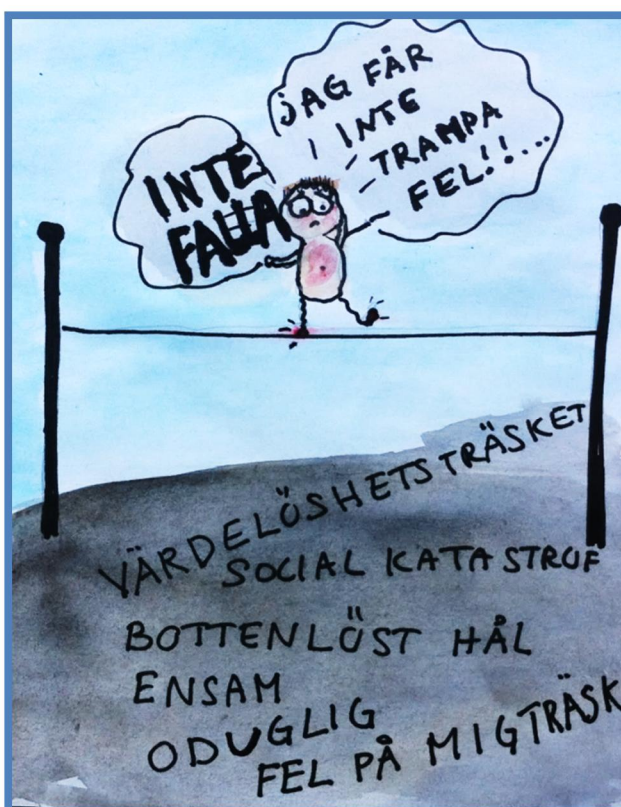 INTE
FALLA
JAG FÅR
INTE
TRAMPA
FEL!!...
VÄRDELÖSHETSTRÄSKET
SOCIAL KATASTROF
BOTTENLÖST HÅL
ENSAM
ODUGLIG
FEL PÅ MIGTRÄSK